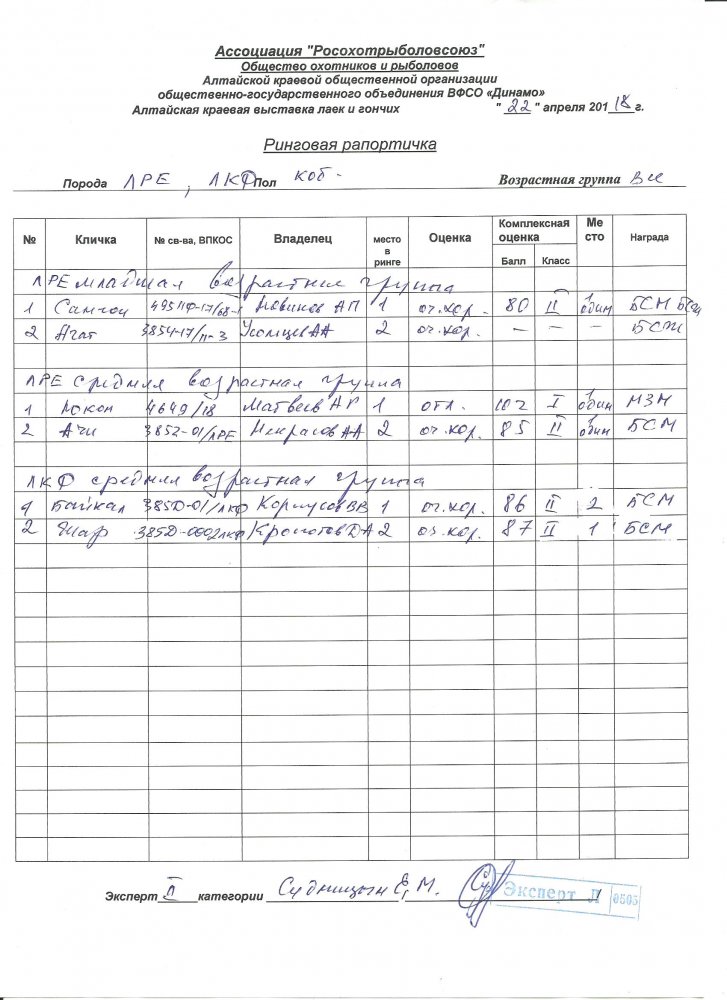 Ассоциация "Росохотрыболовсоюз"
Общество охотников и рыболовов
Алтайской краевой общественной организации
общественно-государственного объединения ВФСО «Динамо»
Алтайская краевая выставка лаек и гончих "22" апреля 2018г.
Ринговая рапортичка
Порода ЛРЕ, ЛКФ Пол коб- Возрастная группа Все
№ Кличка № св-ва, ВПКОС Владелец место в ринге Оценка Комплексная оценка Балл Класс Место Награда
ЛРЕ младшая возрастная группа
1 1 оч.хор. 80 II 1 один БСМ
2 Агат 3854-17/ Усольцев АА 2 оч.хор. – – – БСМ
ЛРЕ средняя возрастная группа
1 Локон 4649/18 Матвеев АГ 1 отл. 102 I 1 один МЗМ
2 Ачи 3852-01/ЛРЕ Некрасов АА 2 оч.хор. 85 II 1 один БСМ
ЛКФ средняя возрастная группа
1 Байкал 385D-01/ЛКФ Корпусов ВВ 1 оч.хор. 86 II 2 БСМ
2 385D-0002ЛКФ Кропотов DА 2 оч.хор. 87 II 1 БСМ
Эксперт II категории Судницын Е.М.
Эксперт Л 0505